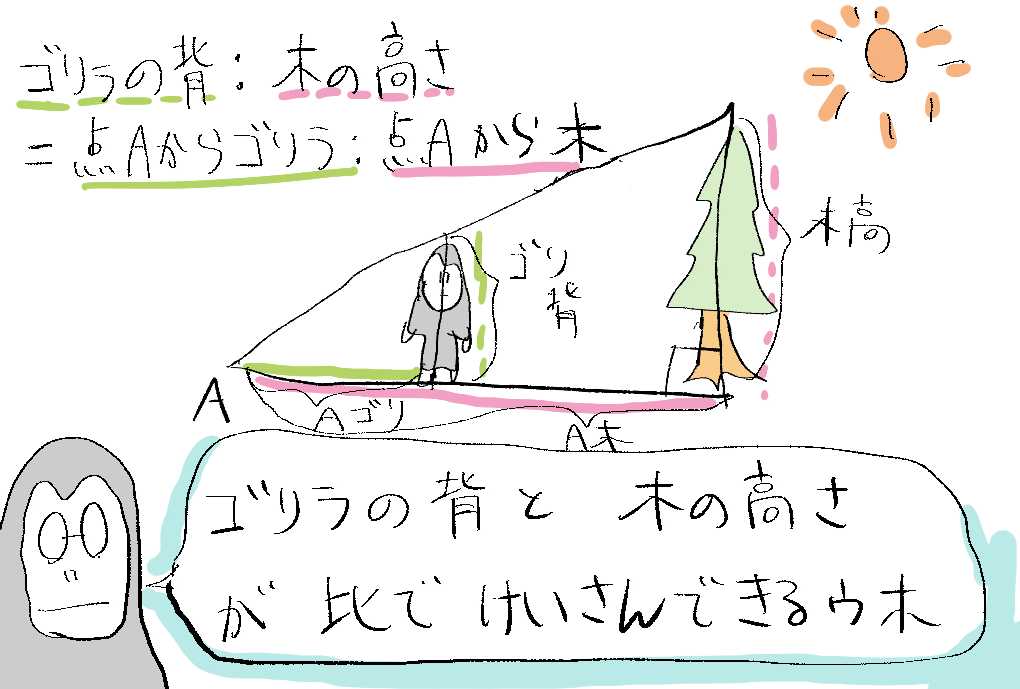 ゴリラの背：木の高さ
＝点Aからゴリラ：点Aから木
木高
ゴリ
背
A
Aゴリ
A木
ゴリラの背と 木の高さ
が 比で けいさんできるウホ